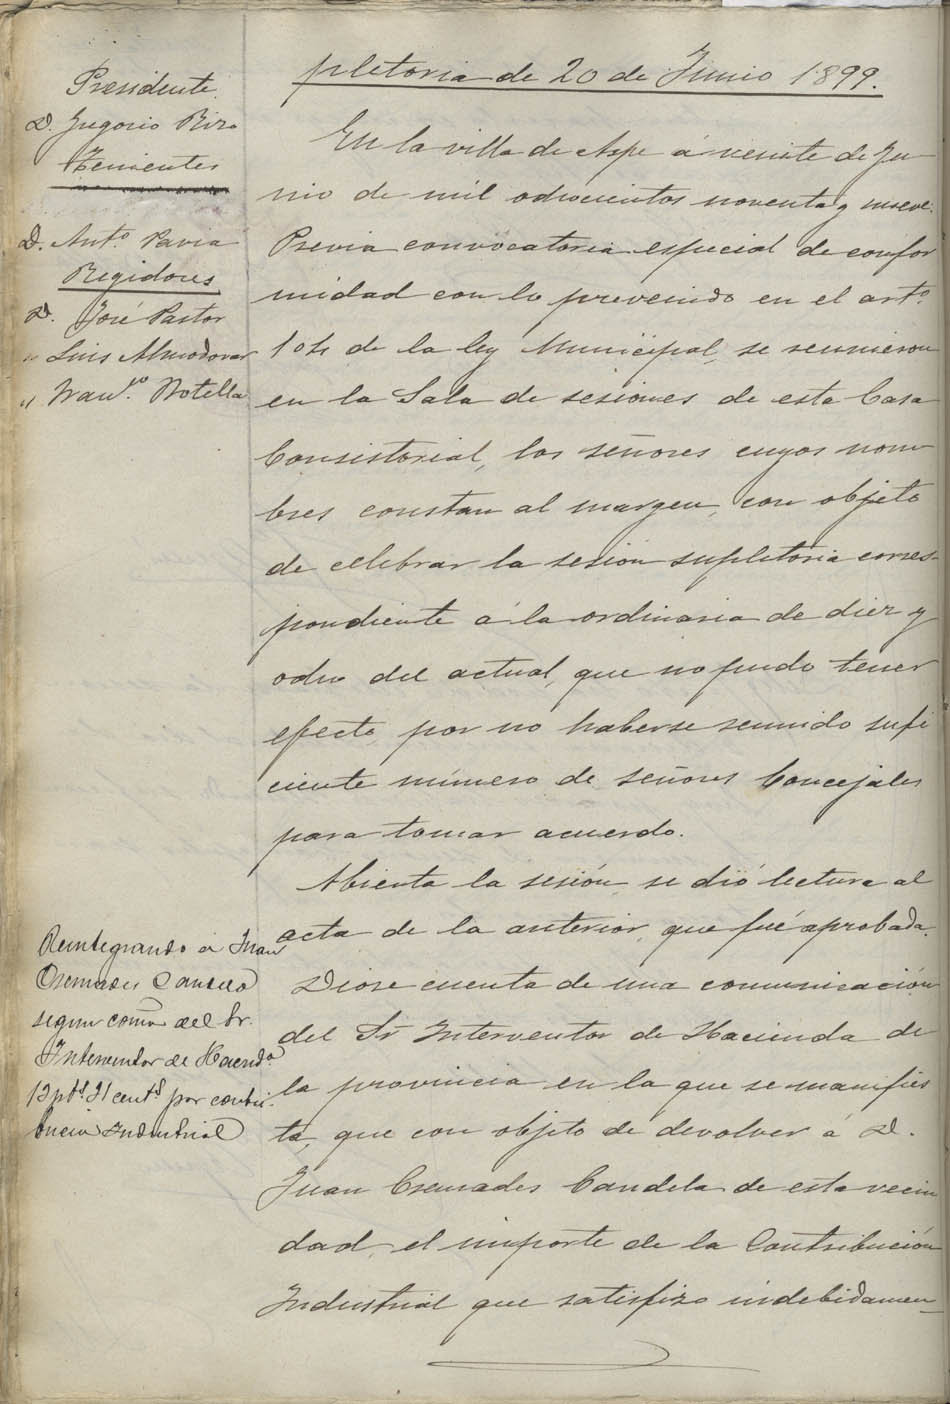 pletoria de 20 de Junio 1899.
Presidente
D. Gregorio Rizo
Tenientes
D. Ant.º Pavia
Regidores
D. José Pastor
" Luis Almodovar
" Fran.co Botella
En la villa de Aspe á veinte de Ju-
nio de mil ochocientos noventa y nueve.
Previa convocatoria especial de confor
midad con lo prevenido en el art.º
104 de la ley Municipal, se reunieron
en la Sala de sesiones de esta Casa
Consistorial, los señores cuyos nom
bres constan al margen, con objeto
de celebrar la sesión supletoria corres-
pondiente á la ordinaria de diez y
ocho del actual, que no pudo tener
efecto, por no haberse reunido sufi
ciente número de señores Concejales
para tomar acuerdo.
Abierta la sesión, se dió lectura al
acta de la anterior, que fué aprobada.
Reintegrando á Juan
Cremades Candela
segun comon del Sr.
Interventor de Haciendª
12 pts. 21 cents por contri-
bucion Industrial
Diose cuenta de una comunicación
del Sr Interventor de Hacienda de
la provincia en la que se manifies
ta, que con objeto de devolver á D.
Juan Cremades Candela de esta vecin
dad, el importe de la Contribución
Industrial que satisfizo indebidamen-